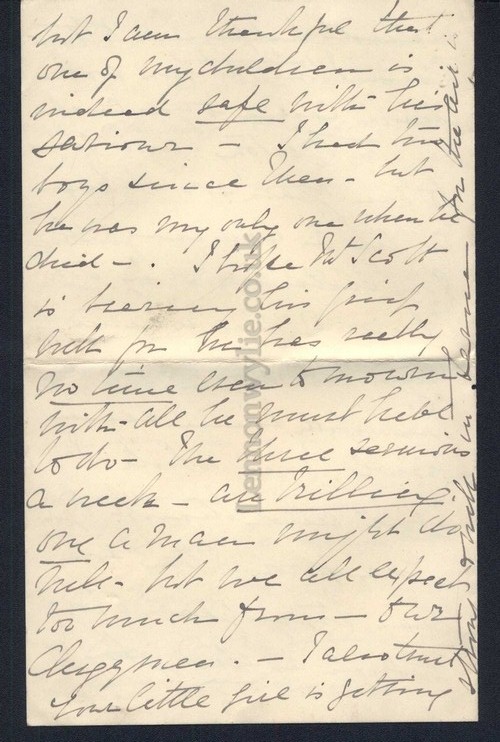 but I am thankful that
one of my children is
indeed safe with his
Saviour - I had two
boys since then - but
he was my only one when he
died - . I hope Mr Scott
is bearing his grief
well for he has really
no time even to mourn
with all he must have
to do - The three sermons
a week - are killing
one a man might do
well - but we all expect
too much from - our
Clergymen . - I also trust
your little girl is getting
strong & well in
lennonwylie.co.uk